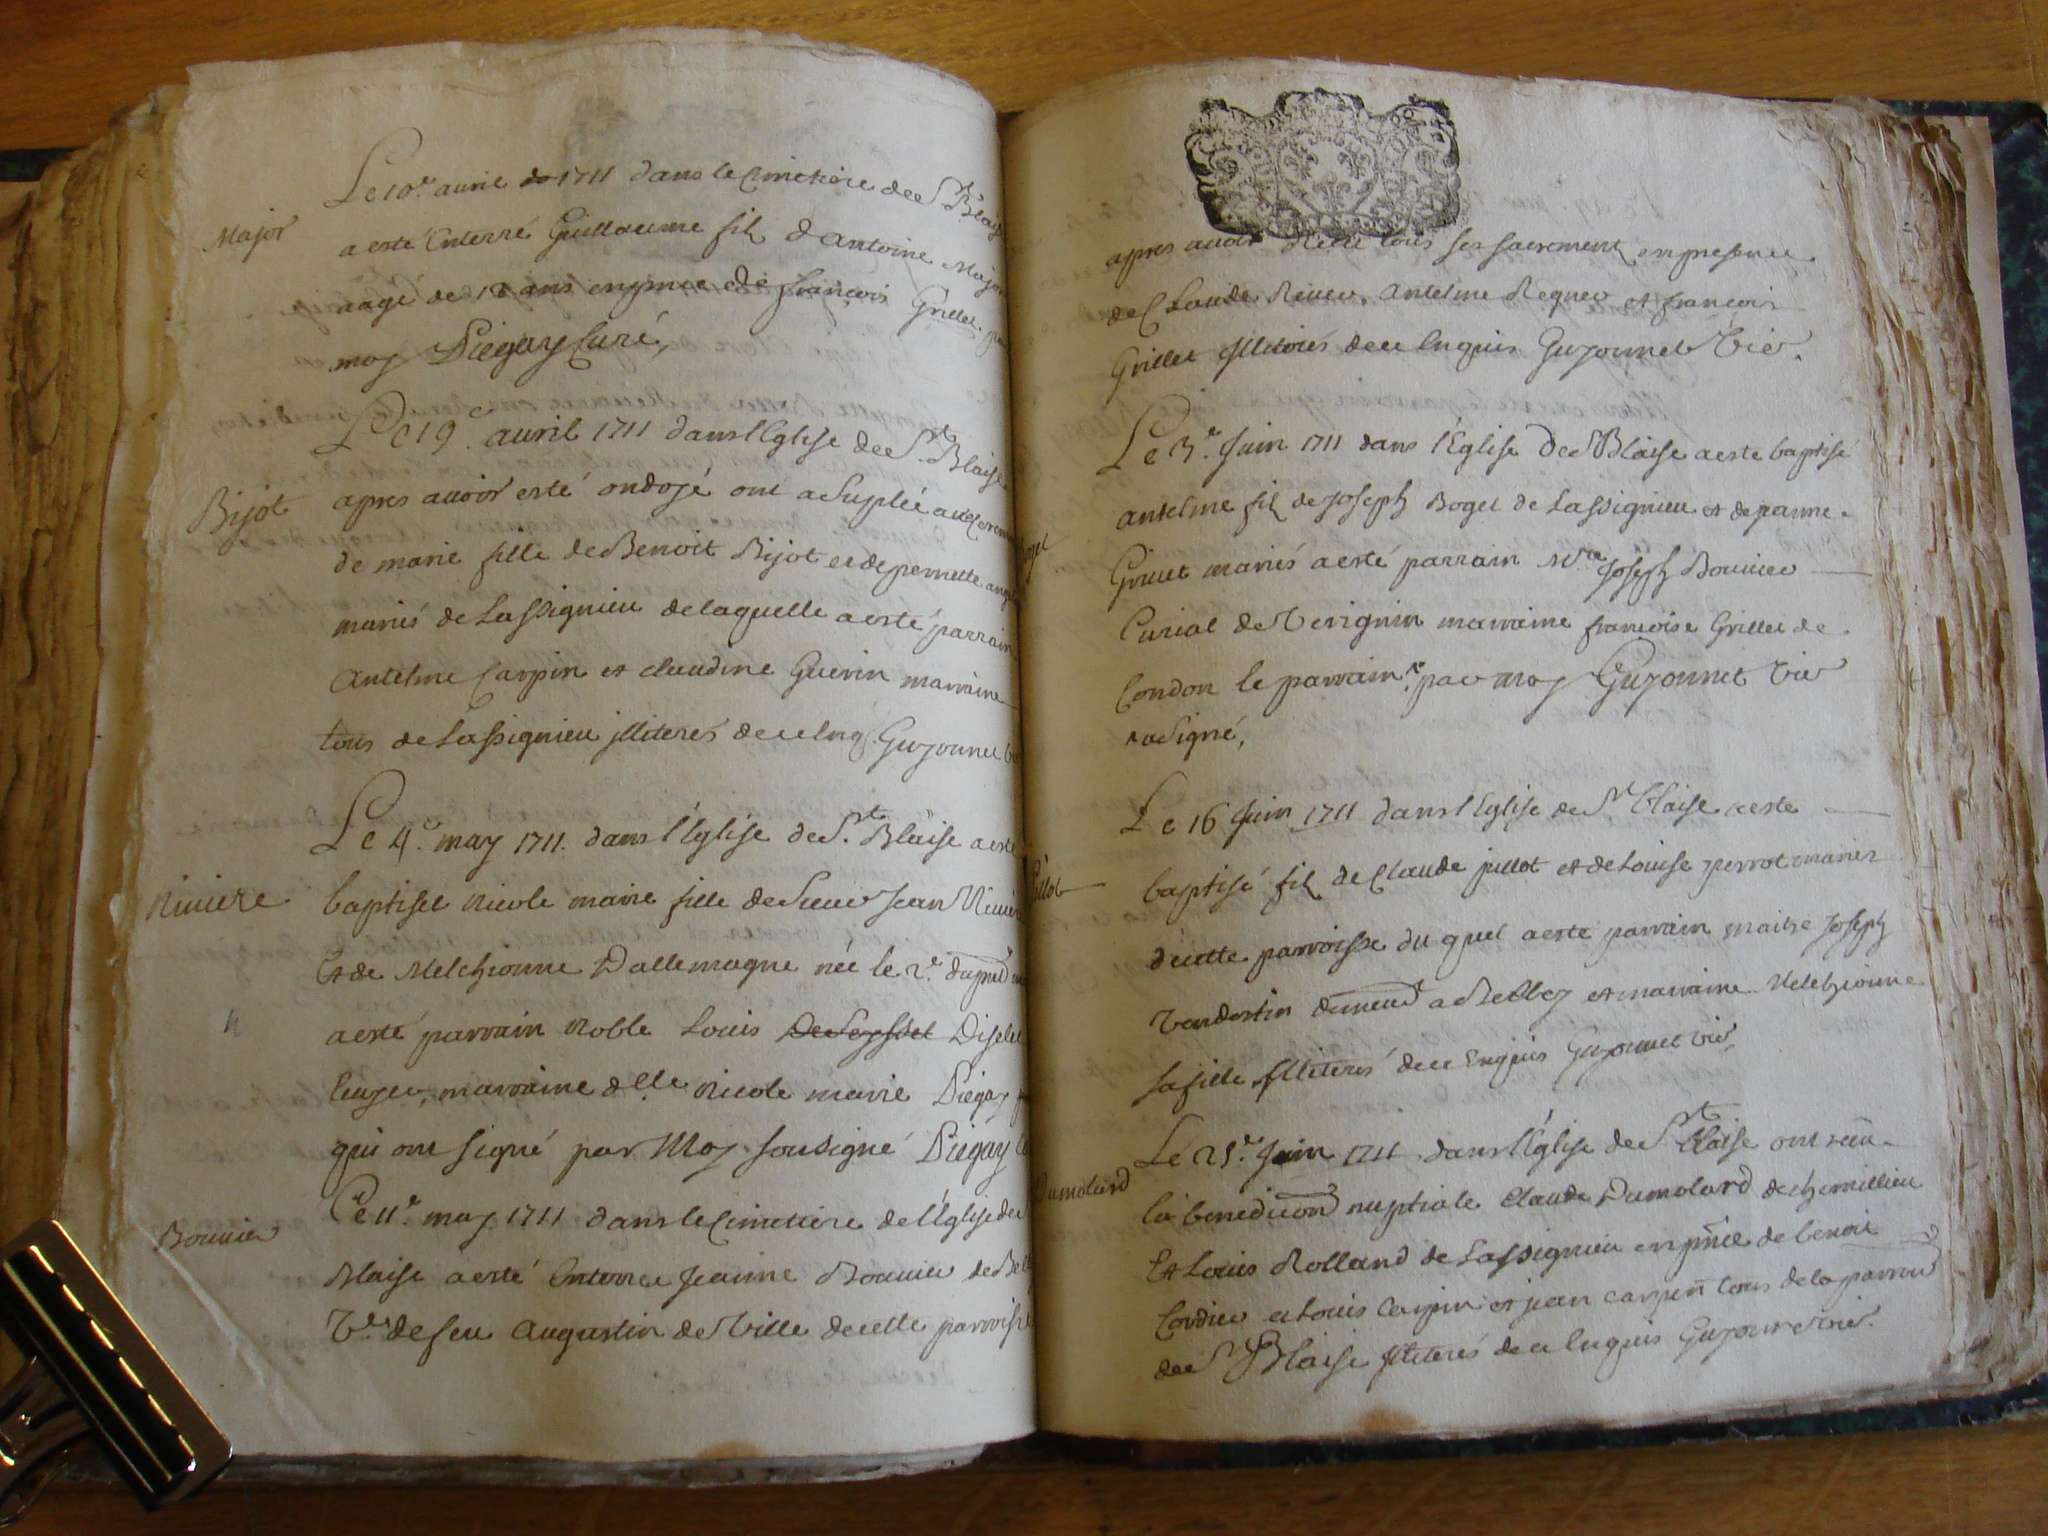 Major
Le 10.e avril de 1711 dans le Cimetiere dee St Blaise
a esté Enterré Guillaume fils d'Antoine Major
aagé de 12 ans en pnce de françois Grillet. par
moy Piegay Curé,
Bijot
Le 19.e avril 1711 dans l'Eglise dee St. Blaise
apres avoir esté ondojé ont a Suplée aux
de marie fille de Benoit Bijot et de pernette
mariés de Lassignieu de laquelle a esté parrain
Antelme Carpin et claudine Guerin marraine
tous de Lassignieu jlliterés de ce Enq. Guyonnet
Le 4.e may 1711. dans l'Eglise de St. Blaise a esté
Riviere
baptisée nicole marie fille de Sieur Jean Riviere
Et de Melchionne Dallemagne née le 2.e dupnt
a esté parrain noble Louis DeSeyssel Diselet
Euyer, marraine dlle. nicole marie Piegay
qui ont signé par Moy soussigné Piegay
Bouvier
Le 11.e may 1711 dans le Cimetiere de l'Eglise de
Blaise a esté Enterrée Jeanne Bouvier de
Ve. de feu Augustin de Ville de cette parroisse
apres avoir receu tous ses sacrement en presence
de Claude Antelme Regner et françois
Grillet Jlliterés de ce Enquis Guyonnet Vic.
Boget
Le 3.e Juin 1711 dans l'Eglise De St Blaise a este baptisé
antelme fils de Joseph Boget de Lassignieu et de panne
Grivet mariés a esté parrain Mre Joseph Bouvier
Curial de Verignin marraine francoise Grillet de
Condon le parrain par moy Guyonnet Vic
a Signé,
Le 16 Juin 1711 dans l'Eglise de St blaise a este
Jullot
baptisé fils de Claude jullot et de Louise perrot mariés
de cette parroisse du quel a esté parrain maitre Joseph
Vendertin demeut a Belley et marraine Melchionne
sa fille Jlliterés de ce Enquis Guyonnet Vic,
Dumolard
Le 25.e Juin 1711 dans l'Eglise de St Blaise ont
la benediction nuptiale Claude Dumolard de chemillieu
Et Louise Rolland de Lassignieu en pnce de benoit
Cordier et Louis Carpin et jean carpin tous de la parrois
dee St Blaise Jlliterés de ce Enquis Guyonnet vic.